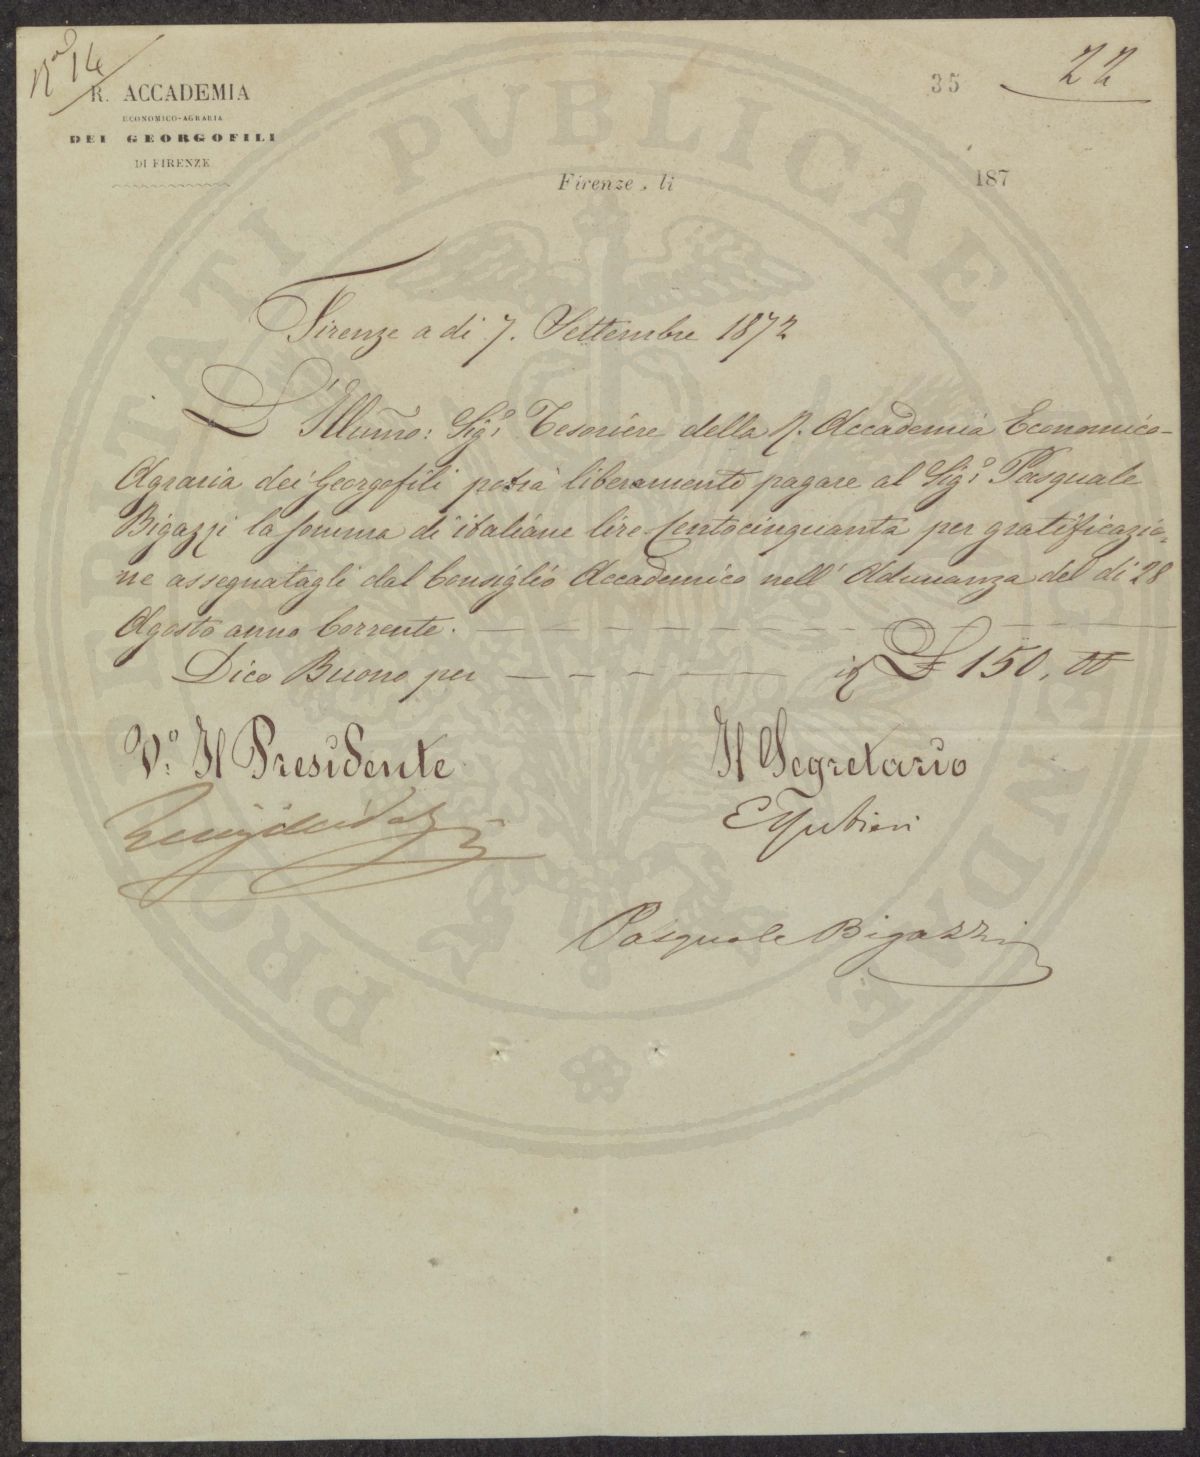 N.° 14
R. ACCADEMIA
ECONOMICO-AGRARIA
DEI GEORGOFILI
DI FIRENZE
35
22
Firenze, li 187
PROSPERITATI PUBLICAE AUGENDAE
Firenze a di 7. Settembre 1872
L'Illumo: Sig.r Tesoriere della R. Accademia Economico-
Agraria dei Georgofili potrà liberamente pagare al Sig.r Pasquale
Bigazzi la somma di italiane lire Centocinquanta per gratificazio-
ne assegnatagli dal Consiglio Accademico nell' Adunanza del di 28
Agosto anno Corrente. —
Dico Buono per — — — — — £ 150, 00
V.° Il Presidente
Il Segretario
Pasquale Bigazzi